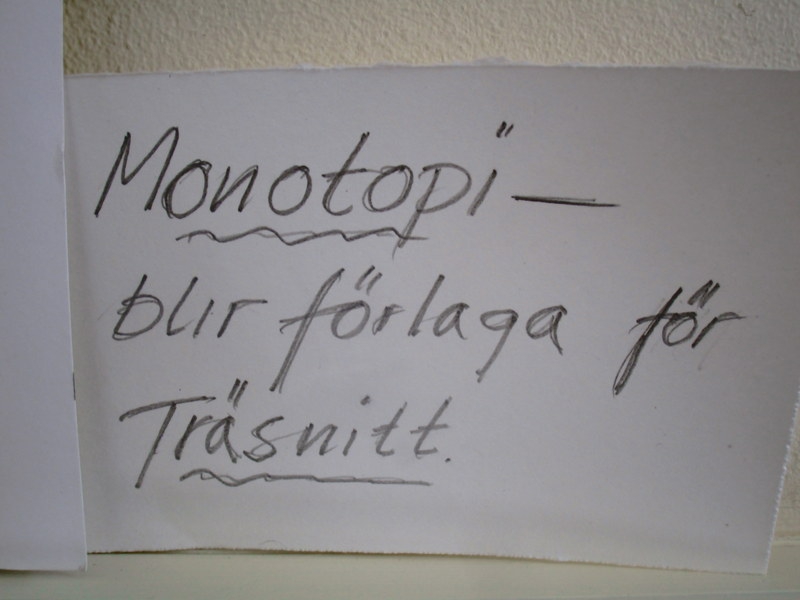 Monotopi —
blir förlaga för
Träsnitt.